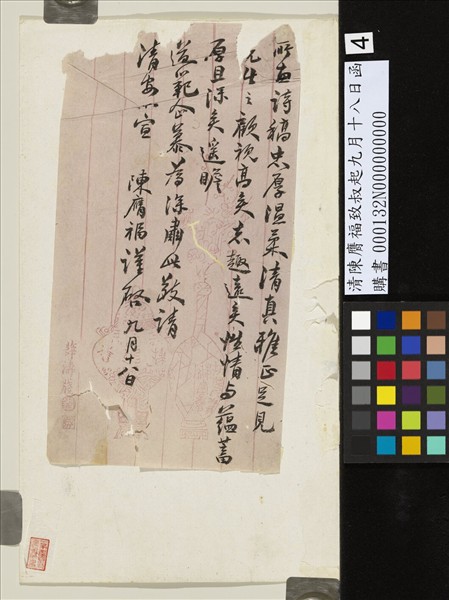 所惠詩稿忠厚溫柔清真雅正足見
先生之顧視高矣志趣遠矣性情與蘊蓄
厚且深矣遙瞻
道範企慕為深肅此敬請
清安不宣
陳膺福謹啓九月十八日
4
清陳膺福致叔起九月十八日函
購書 000132N000000000